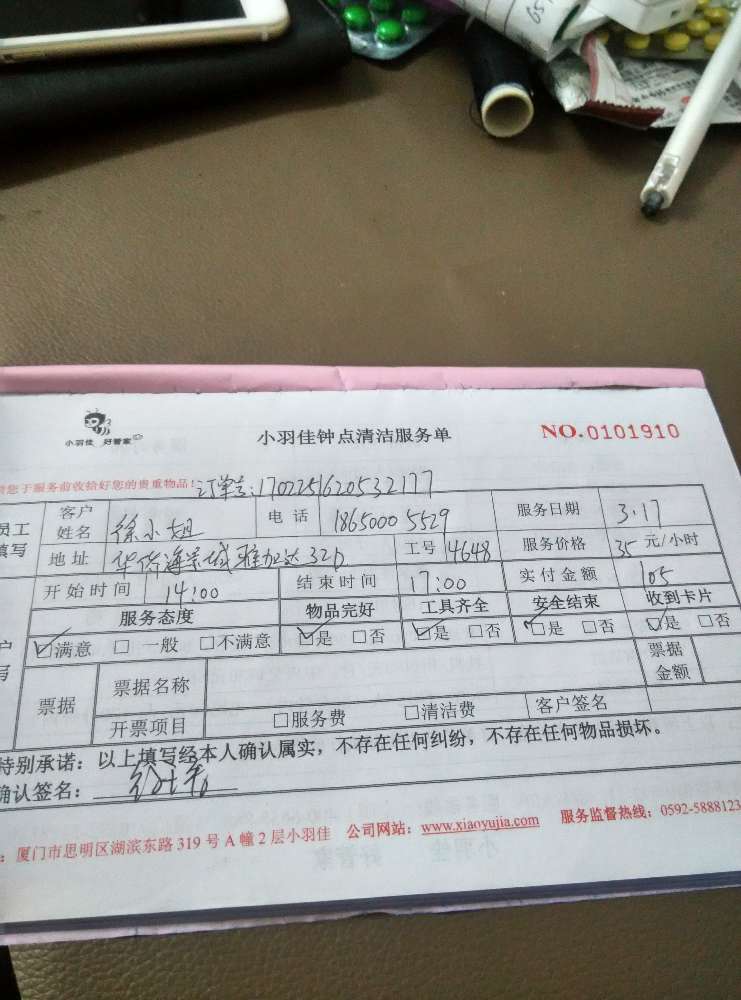 小羽佳 好管家
小羽佳钟点清洁服务单
NO.0101910
您于服务前收拾好您的贵重物品!
订单号:1702251620532177
员工填写
客户姓名 徐小姐 电话 18650005529 服务日期 3.17
地址 华侨海景城雅加达32D 工号 4648 服务价格 35 元/小时
开始时间 14:00 结束时间 17:00 实付金额 105
服务态度 物品完好 工具齐全 安全结束 收到卡片
☑满意 □一般 □不满意 ☑是 □否 ☑是 □否 ☑是 □否 ☑是 □否
票据 票据名称 票据金额
开票项目 □服务费 □清洁费 客户签名
特别承诺：以上填写经本人确认属实，不存在任何纠纷，不存在任何物品损坏。
确认签名：
厦门市思明区湖滨东路 319 号 A 幢 2 层小羽佳 公司网站：www.xiaoyujia.com 服务监督热线：0592-5888123